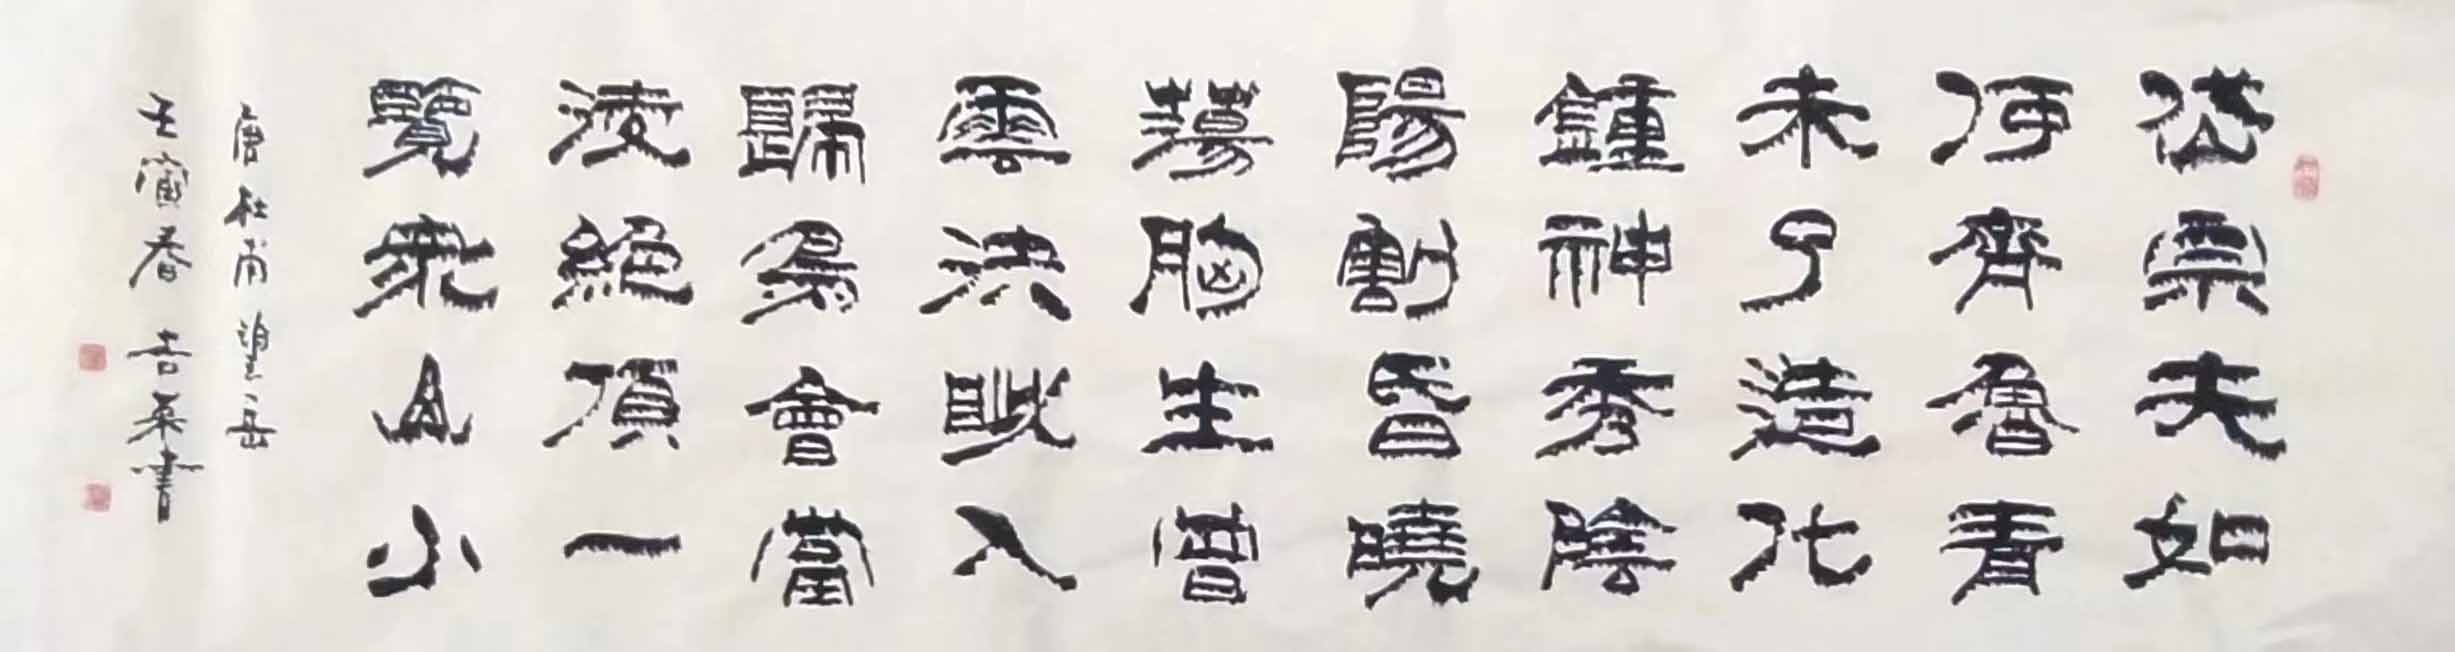 岱宗夫如
何齊魯青
未了造化
鍾神秀陰
陽割昏曉
蕩胸生曾
雲決眦入
歸鳥會當
淩絕頂一
覽衆山小
唐杜甫望岳
壬寅春吉書